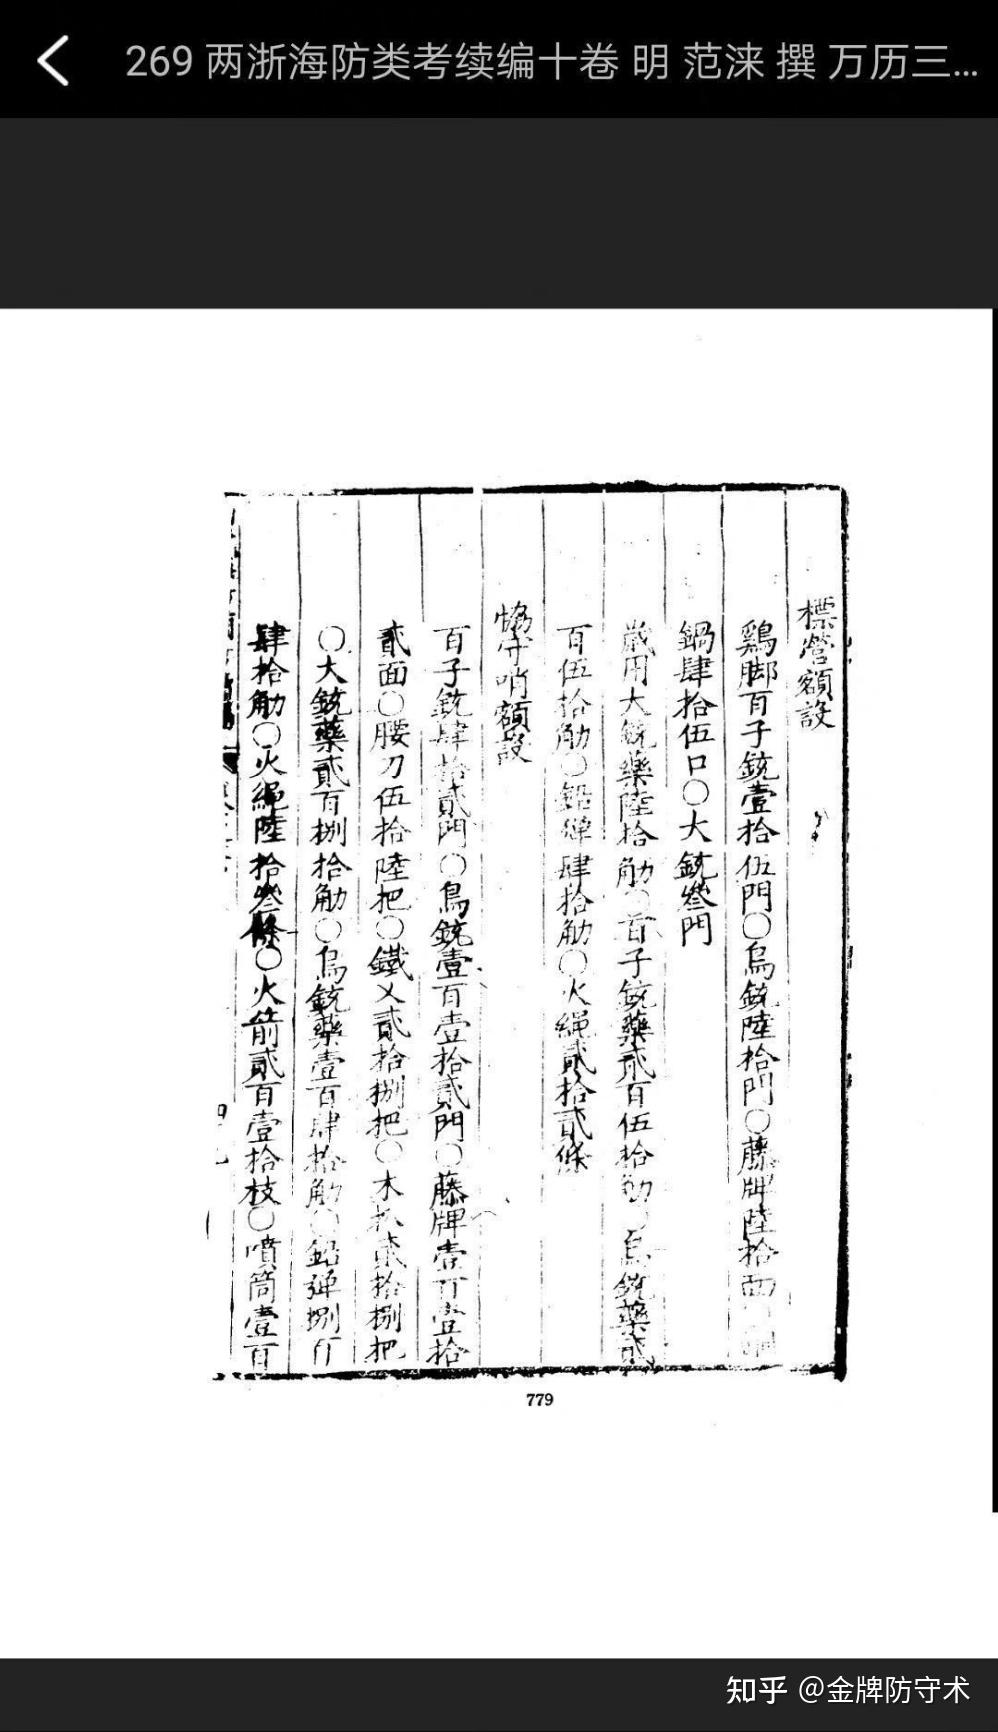 269 两浙海防类考续编十卷 明 范涞 撰 万历三...
標營額設
鷄脚百子銃壹拾伍門〇鳥銃陸拾門〇藤牌陸拾面
鍋肆拾伍口〇大銃叄門
歲用大銃藥陸拾觔〇百子銃藥貳百伍拾觔〇鳥銃藥貳
百伍拾觔〇鉛弹肆拾觔〇火繩貳拾貳條
協守哨額設
百子銃肆拾貳門〇鳥銃壹百壹拾貳門〇藤牌壹百壹拾
貳面〇腰刀伍拾陸把〇鐵乂貳拾捌把〇木 貳拾捌把
〇大銃藥貳百捌拾觔〇鳥銃藥壹百肆拾觔〇鉛弹捌
肆拾觔〇火繩陸拾叄條〇火箭貳百壹拾枝〇噴筒壹百
779
知乎 @金牌防守术